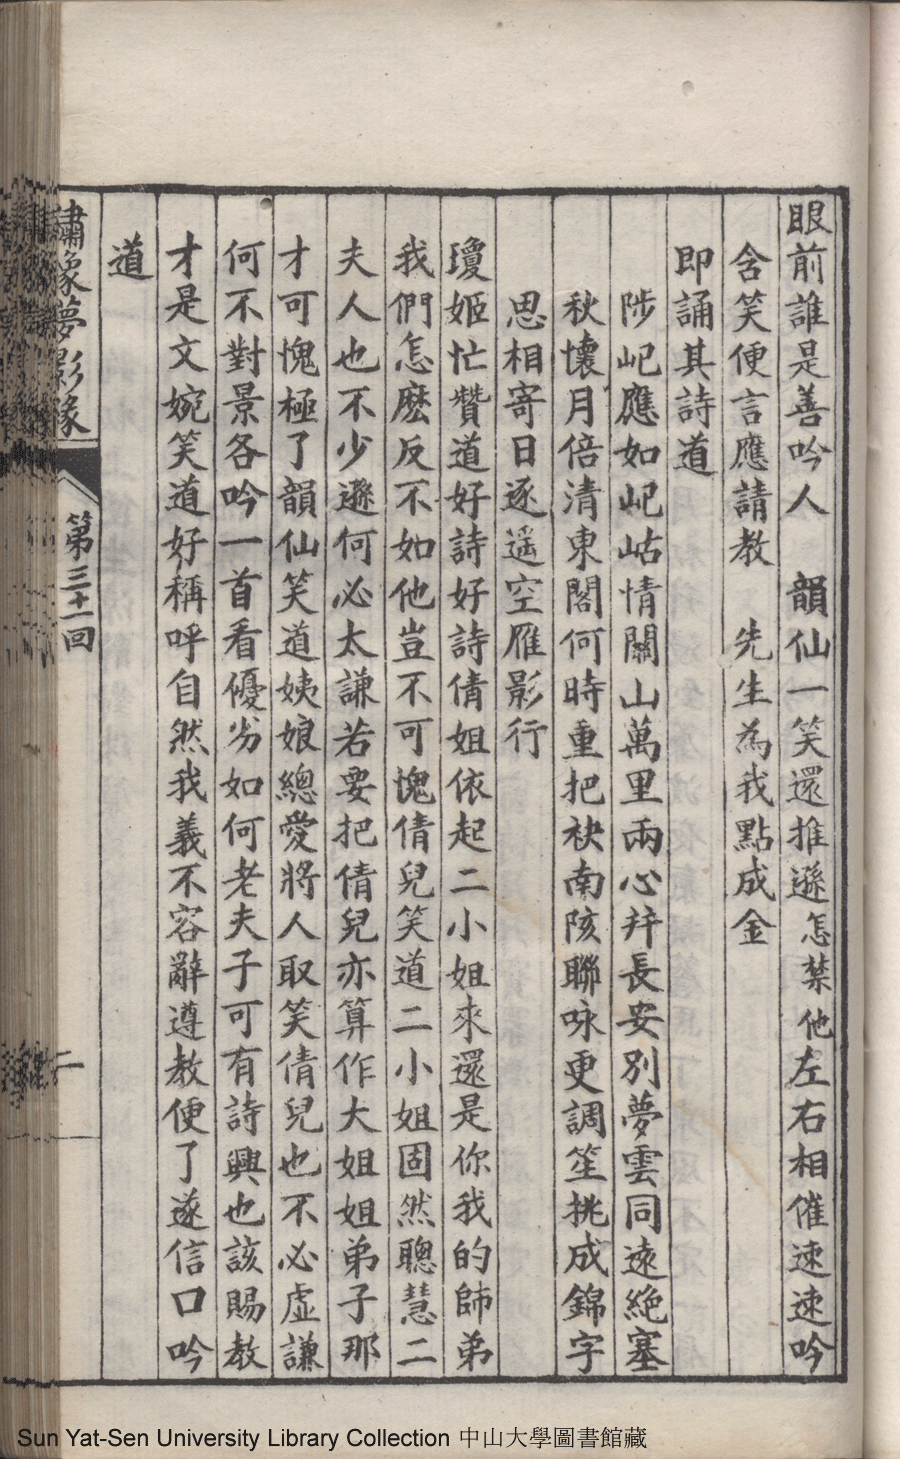 眼前誰是善吟人　韻仙一笑還推遜怎禁他左右相催速速吟
含笑便言應請教　先生為我點成金
即誦其詩道
陟屺應如屺岵情關山萬里兩心拜長安別夢雲同遠絶塞
秋懷月倍清東閣何時重把袂南陔聯咏更調笙挑成錦字
思相寄日逐遥空雁影行
瓊姬忙贊道好詩好詩倩姐依起二小姐來還是你我的師弟
我們怎麽反不如他豈不可愧倩兒笑道二小姐固然聰慧二
夫人也不少遜何必太謙若要把倩兒亦算作大姐姐弟子那
才可愧極了韻仙笑道姨娘總愛將人取笑倩兒也不必虛謙
何不對景各吟一首看優劣如何老夫子可有詩興也該賜教
才是文婉笑道好稱呼自然我義不容辭遵教便了遂信口吟
道
繡像夢影緣
第三十一回
二
Sun Yat-Sen University Library Collection 中山大學圖書館藏